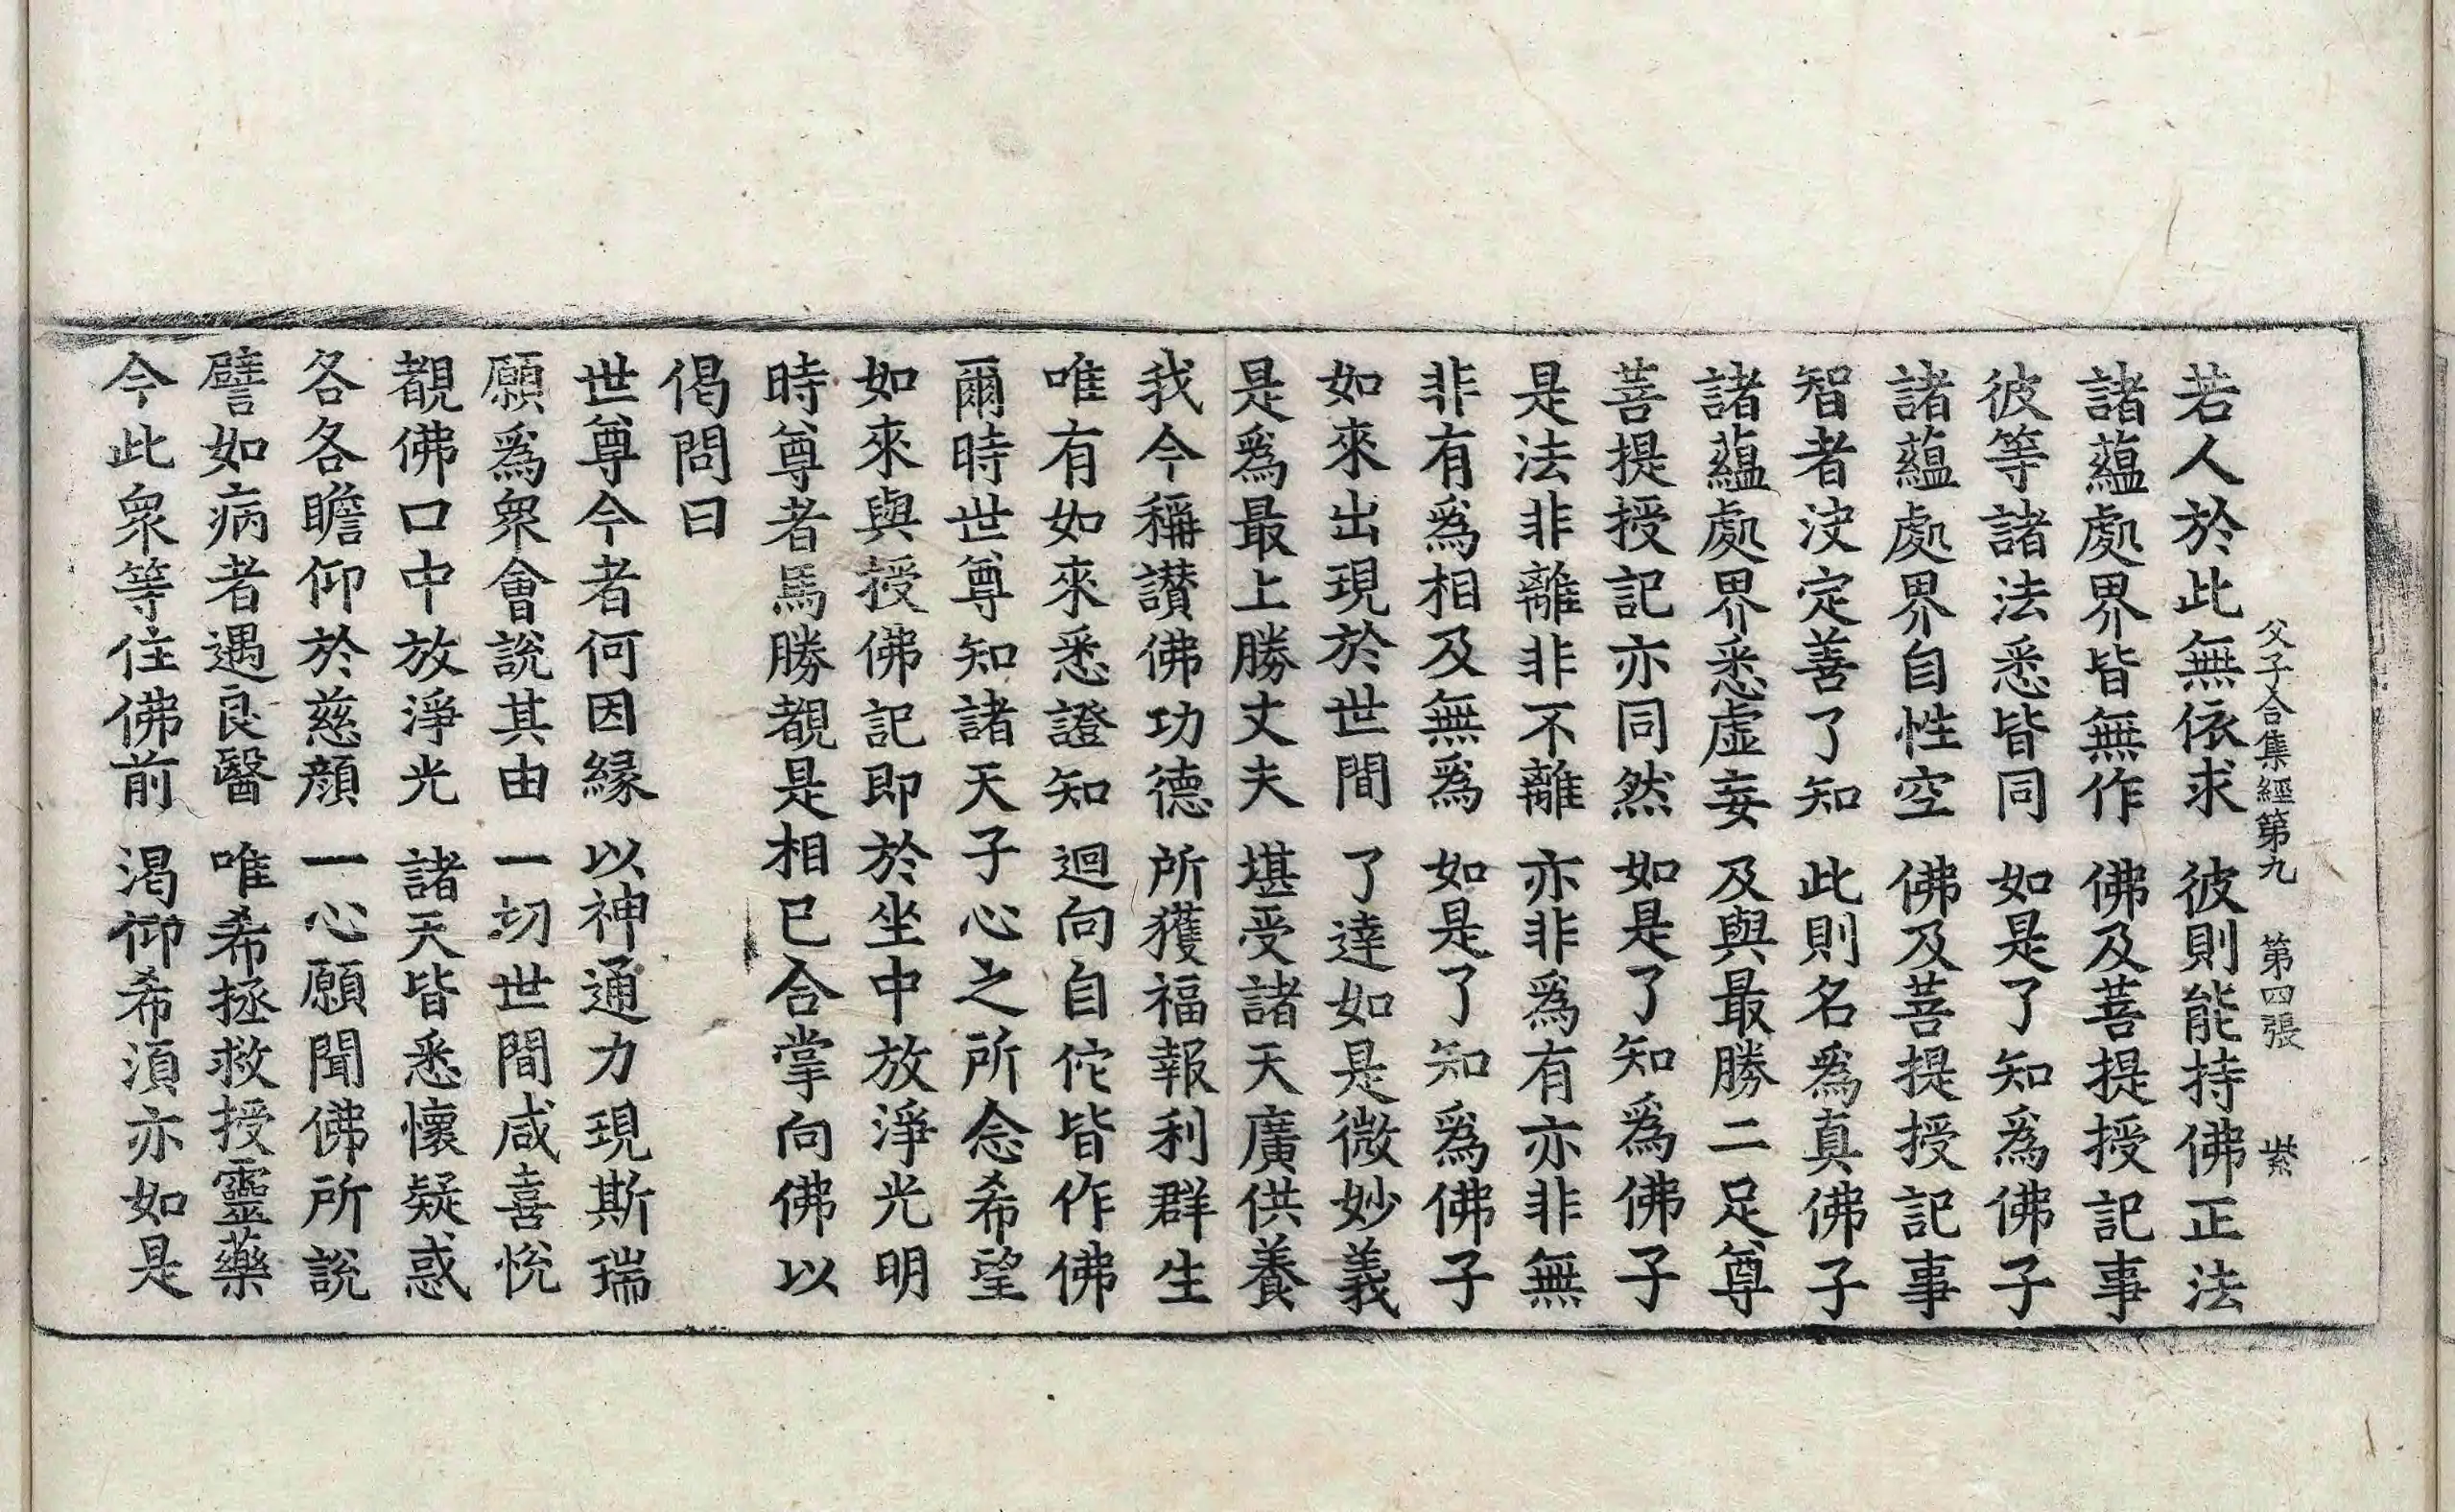 父子合集經第九　第四張　紫
若人於此無依求　彼則能持佛正法
諸蘊處界皆無作　佛及菩提授記事
彼等諸法悉皆同　如是了知爲佛子
諸蘊處界自性空　佛及菩提授記事
智者决定善了知　此則名爲真佛子
諸蘊處界悉虛妄　及與最勝二足尊
菩提授記亦同然　如是了知爲佛子
是法非離非不離　亦非爲有亦非無
非有爲相及無爲　如是了知爲佛子
如來出現於世間　了達如是微妙義
是爲最上勝丈夫　堪受諸天廣供養
我今稱讃佛功德　所獲福報利群生
唯有如來悉證知　迴向自佗皆作佛
爾時世尊知諸天子心之所念希望
如來與授佛記即於坐中放淨光明
時尊者馬勝覩是相已合掌向佛以
偈問曰
世尊今者何因緣　以神通力現斯瑞
願爲衆會說其由　一切世間咸喜悅
覩佛口中放淨光　諸天皆悉懷疑惑
各各瞻仰於慈顏　一心願聞佛所說
譬如病者遇良醫　唯希拯救授靈藥
今此衆等住佛前　渴仰希湏亦如是